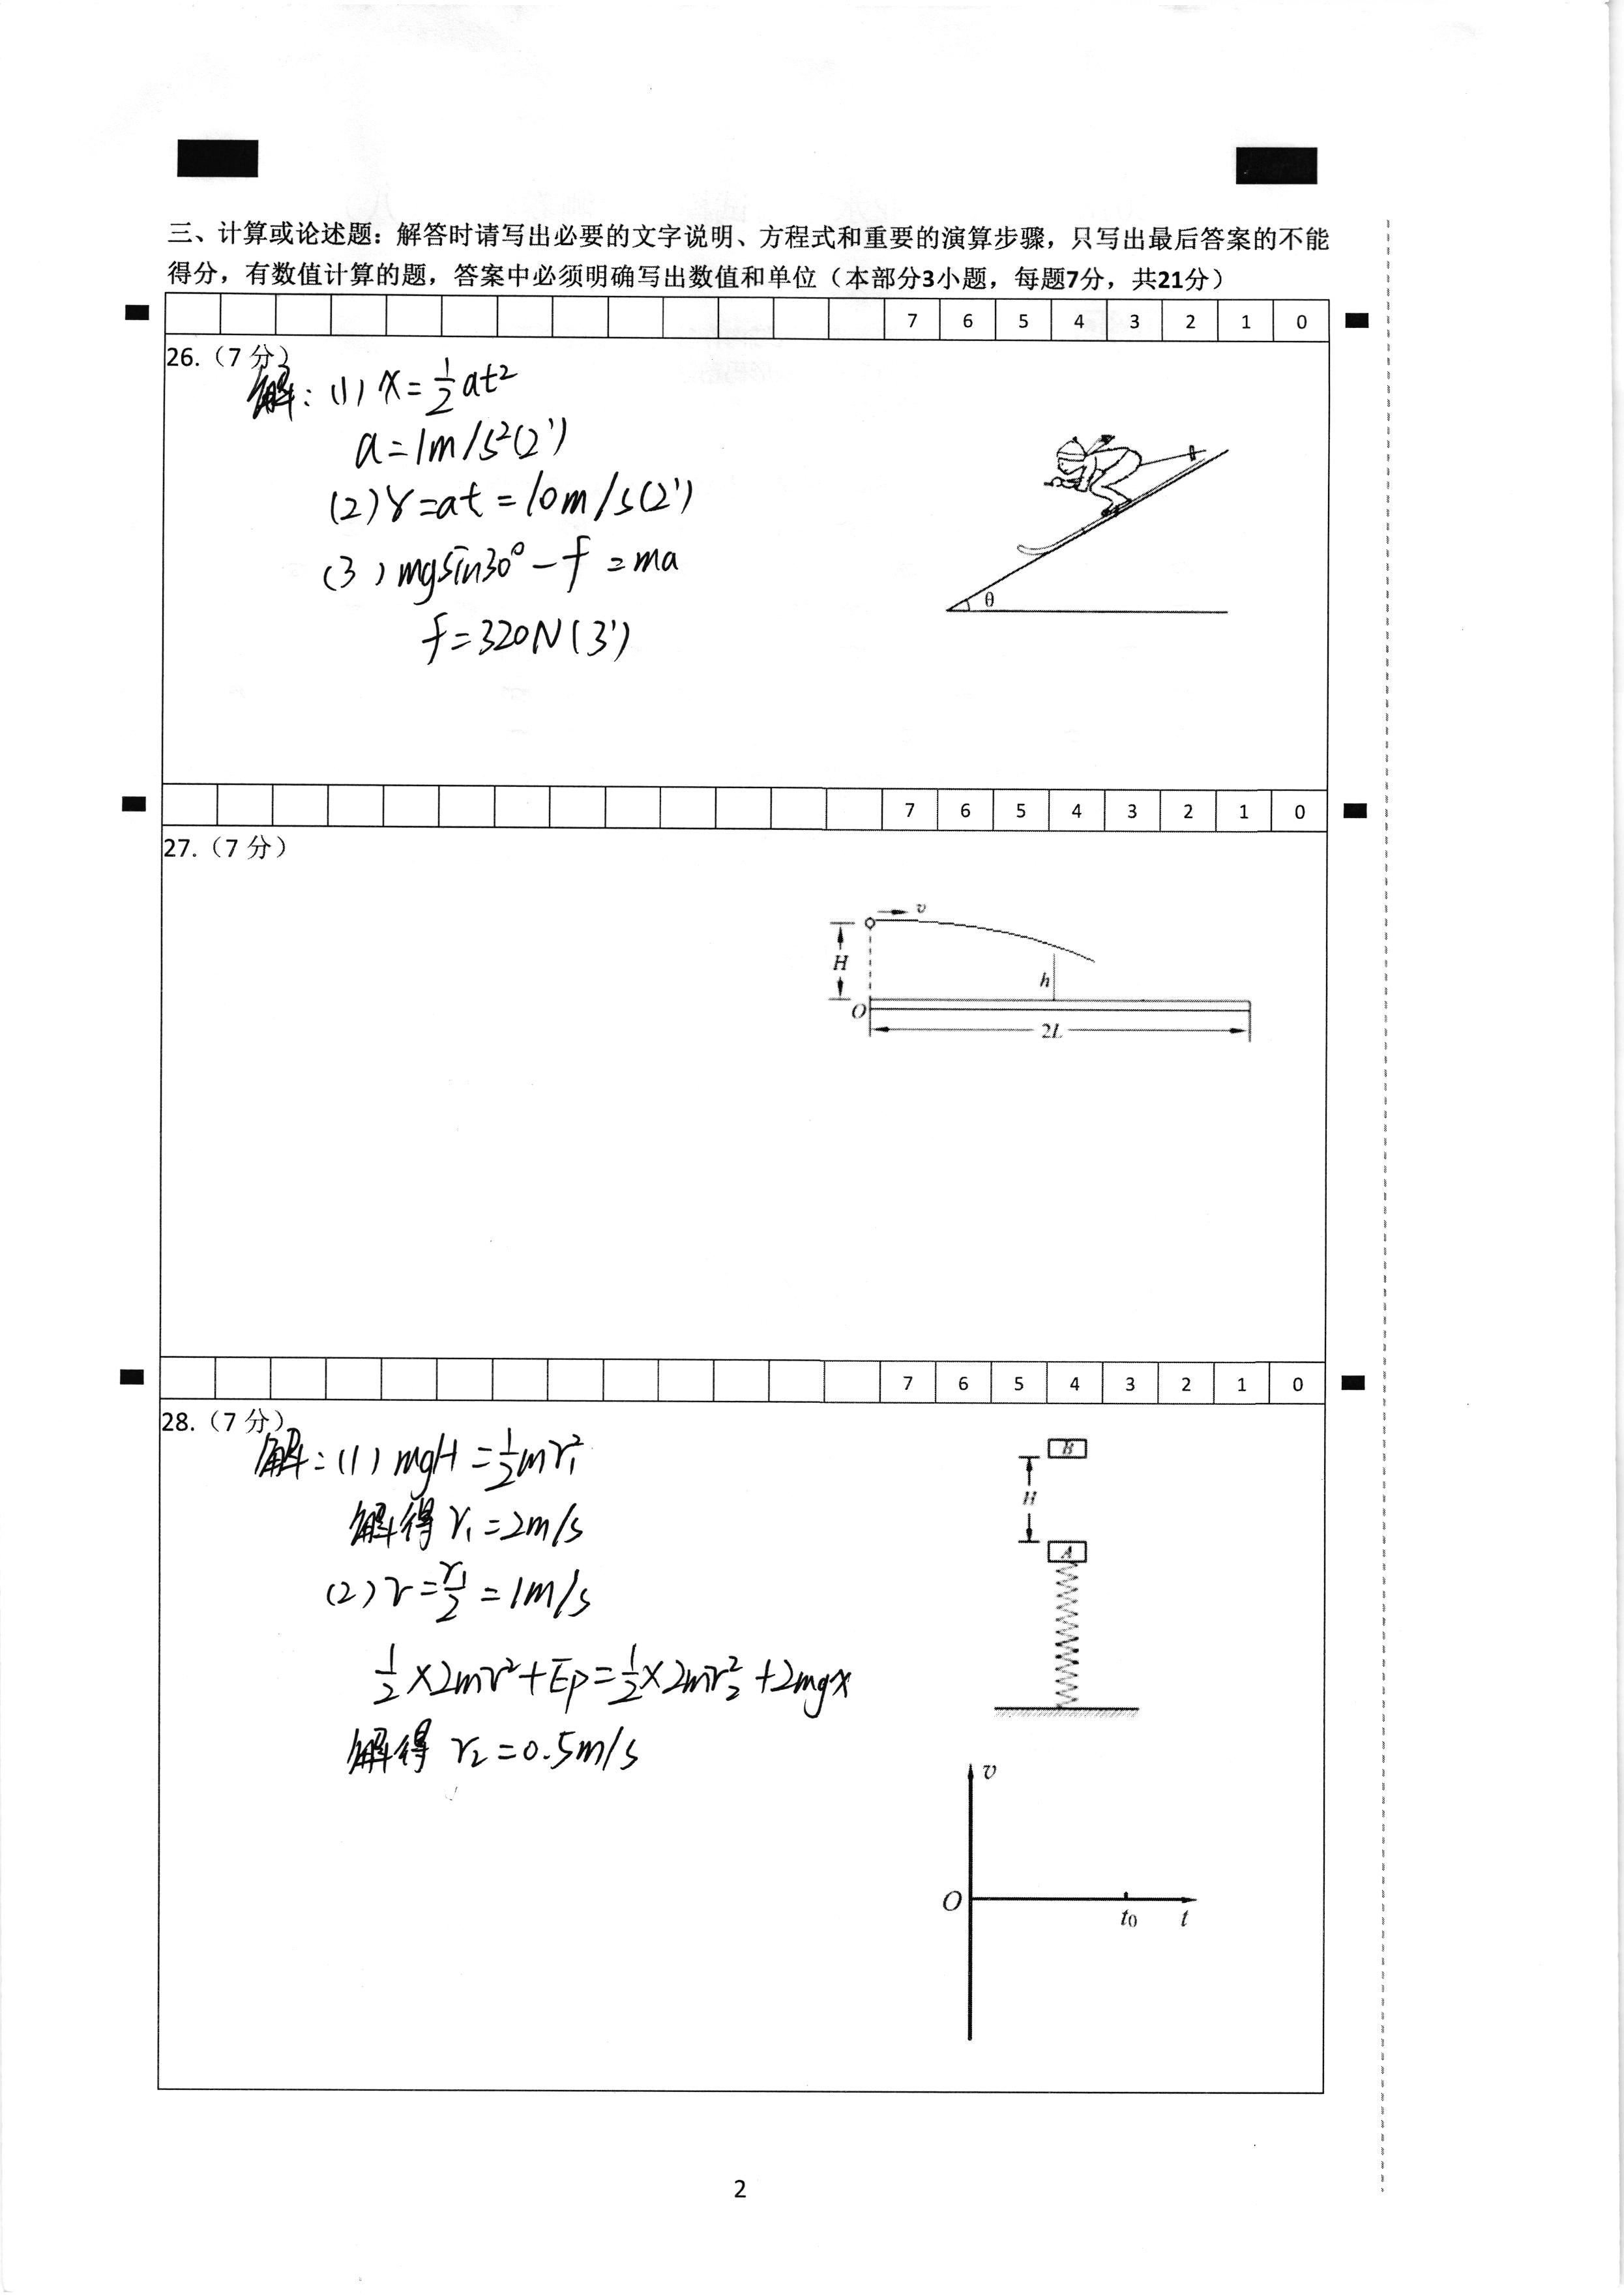 三、计算或论述题：解答时请写出必要的文字说明、方程式和重要的演算步骤，只写出最后答案的不能
得分，有数值计算的题，答案中必须明确写出数值和单位（本部分3小题，每题7分，共21分）
7 6 5 4 3 2 1 0
26.（7 分）
解：(1) x=½at²
a=1m/s²(2')
(2) v=at=10m/s(2')
(3) mgsin30°-f=ma
f=320N(3')
θ
7 6 5 4 3 2 1 0
27.（7 分）
v
H
h
O
2L
7 6 5 4 3 2 1 0
28.（7 分）
解：(1) mgH=½mv₁²
解得 v₁=2m/s
(2) v=v₁/2=1m/s
½×2mv²+Ep=½×2mv₂²+2mgx
解得 v₂=0.5m/s
B
H
A
v
O
t₀ t
2